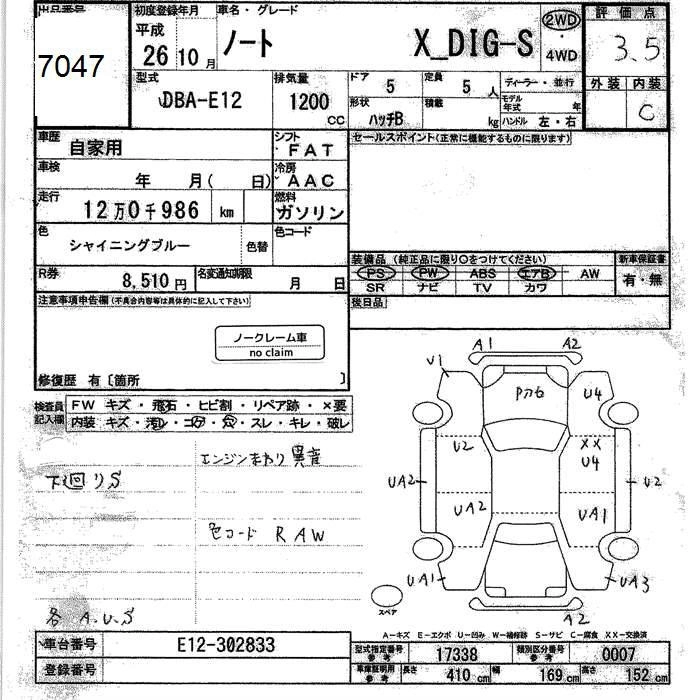 出品番号
7047
初度登録年月
平成
26 10月
車名・グレード
ノート X_DIG-S
2WD
・
4WD
評価点
3.5
外装 内装
C
型式
DBA-E12
排気量
1200
CC
ドア
5
定員
5 人
ディーラー・並行
形状
ハッチB
積載
kg
モデル年式 年
ハンドル 左・右
車歴
自家用
シフト
FAT
車検
年 月( 日)
冷房
AAC
走行
12万0千986 km
燃料
ガソリン
色
シャイニングブルー
色替
色コード
R券
8,510円
名変通知期限
月 日
セールスポイント(正常に機能するものに限ります)
装備品 (純正品に限り○をつけてください)
新車保証書
PS PW ABS エアB AW
有・無
SR ナビ TV カワ
後日品
注意事項申告欄 (不具合内容等は具体的に記入して下さい)
ノークレーム車
no claim
修復歴 有〔箇所 〕
検査員記入欄
FW キズ・飛石・ヒビ割・リペア跡・×要
内装 キズ・汚レ・コゲ・穴・スレ・キレ・破レ
エンジンまわり異音
下廻りS
色コード RAW
各 A.U.S
A1 A2
U1
U4
U2
XX
U4
UA2
UA2
U2
UA1
UA1
UA3
A2
スペア
A－キズ E－エクボ U－凹み W－補修跡 S－サビ C－腐食 XX－交換済
車台番号
E12-302833
登録番号
型式指定番号
参考
17338
類別区分番号
参考
0007
車庫証明用
参考
長さ
410 cm
幅
169 cm
高さ
152 cm